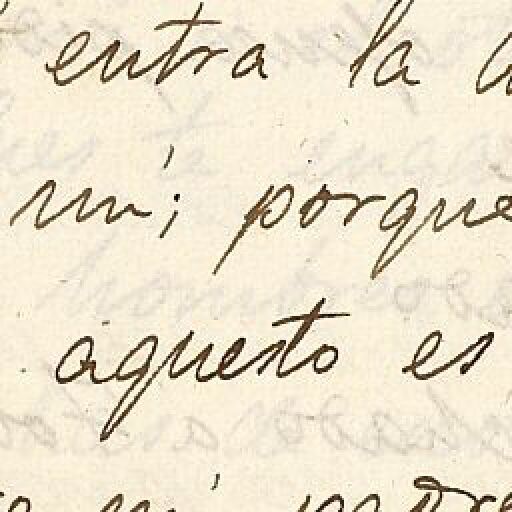 entra la
mí; porque
aquesto es
mí